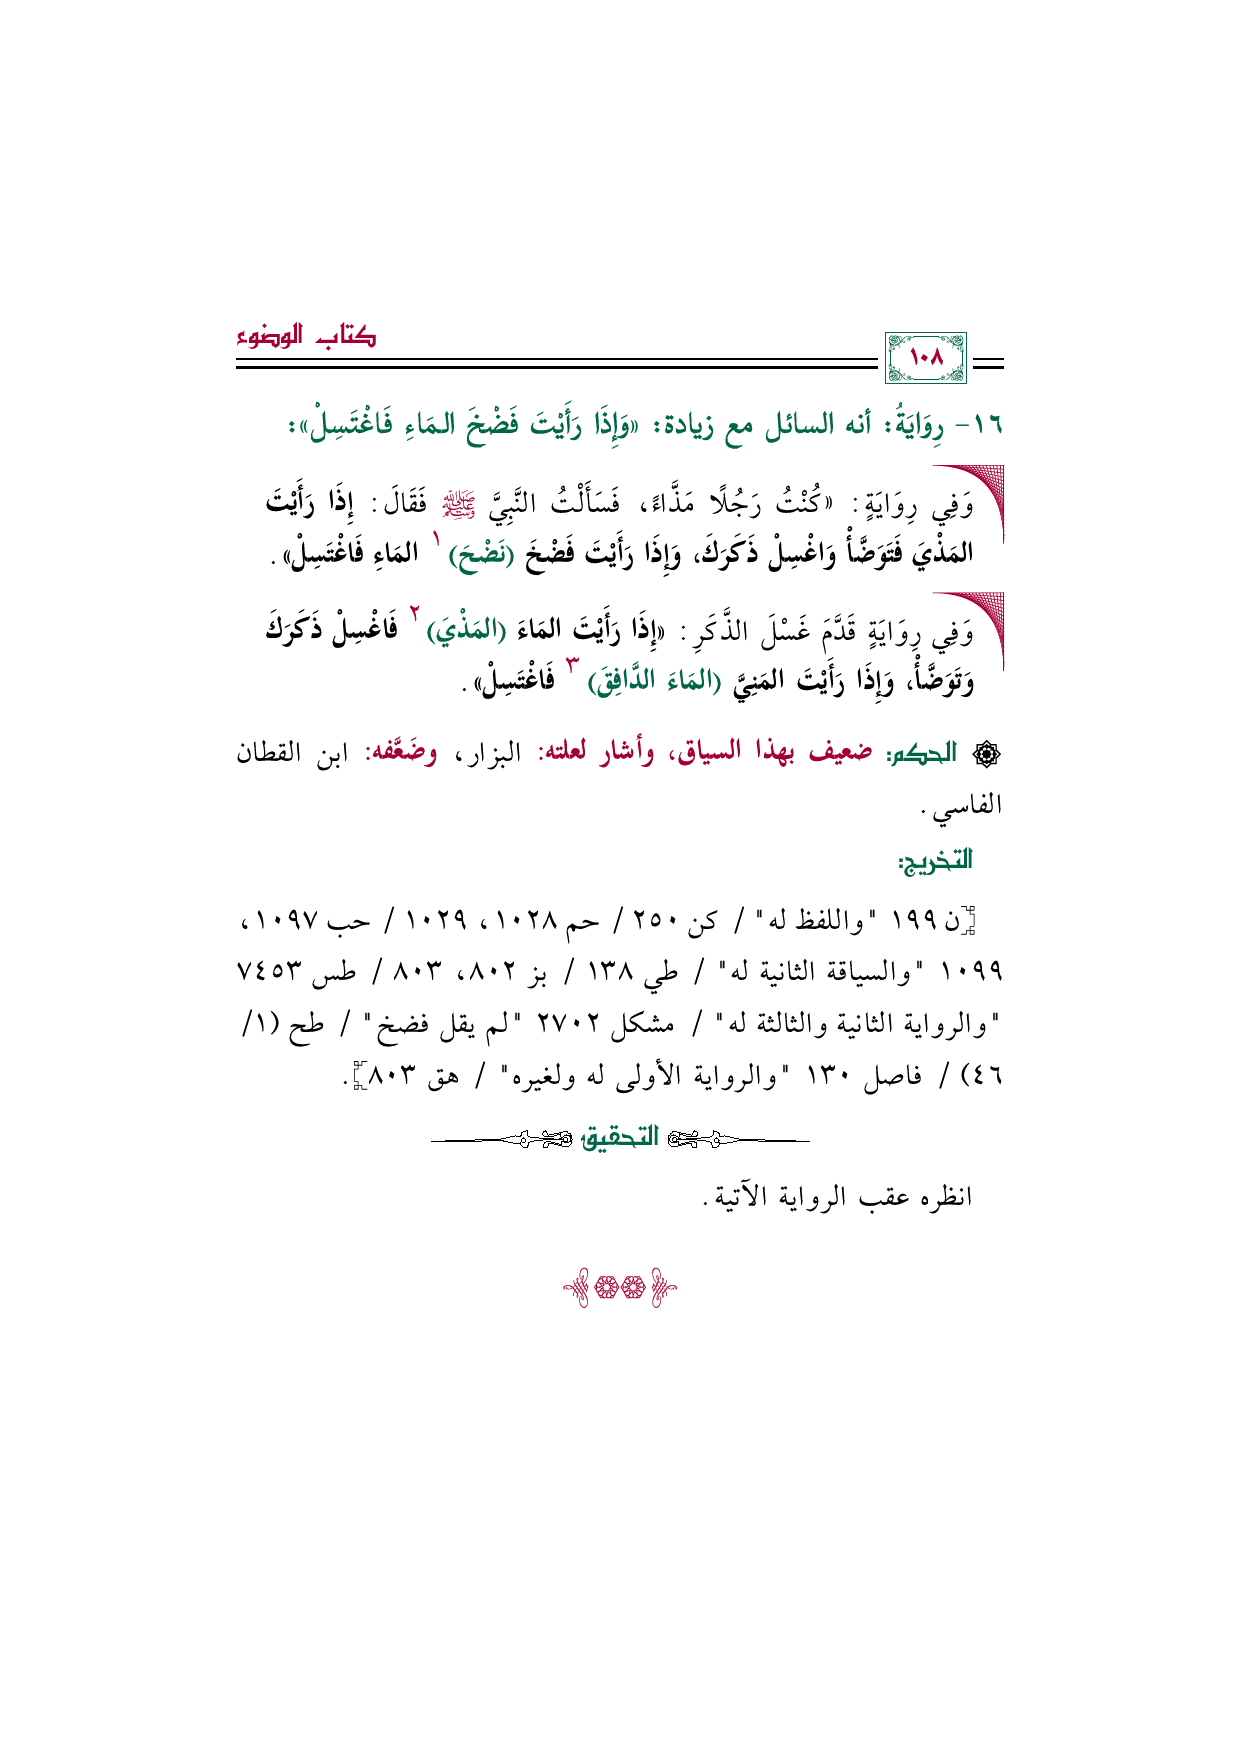 كتاب الوضوء
١٠٨
١٦- رِوَايَةُ: أنه السائل مع زيادة: «وَإِذَا رَأَيْتَ فَضْخَ المَاءِ فَاغْتَسِلْ»:
وَفِي رِوَايَةٍ: «كُنْتُ رَجُلًا مَذَّاءً، فَسَأَلْتُ النَّبِيَّ ﷺ فَقَالَ: إِذَا رَأَيْتَ
المَذْيَ فَتَوَضَّأْ وَاغْسِلْ ذَكَرَكَ، وَإِذَا رَأَيْتَ فَضْخَ (نَضْحَ) ١ المَاءِ فَاغْتَسِلْ».
وَفِي رِوَايَةٍ قَدَّمَ غَسْلَ الذَّكَرِ: «إِذَا رَأَيْتَ المَاءَ (المَذْيَ) ٢ فَاغْسِلْ ذَكَرَكَ
وَتَوَضَّأْ، وَإِذَا رَأَيْتَ المَنِيَّ (المَاءَ الدَّافِقَ) ٣ فَاغْتَسِلْ».
الحكم: ضعيف بهذا السياق، وأشار لعلته: البزار، وضَعَّفه: ابن القطان
الفاسي.
التخريج:
[ن ١٩٩ "واللفظ له" / كن ٢٥٠ / حم ١٠٢٨، ١٠٢٩ / حب ١٠٩٧،
١٠٩٩ "والسياقة الثانية له" / طي ١٣٨ / بز ٨٠٢، ٨٠٣ / طس ٧٤٥٣
"والرواية الثانية والثالثة له" / مشكل ٢٧٠٢ "لم يقل فضخ" / طح (١/
٤٦) / فاصل ١٣٠ "والرواية الأولى له ولغيره" / هق ٨٠٣].
التحقيق
انظره عقب الرواية الآتية.